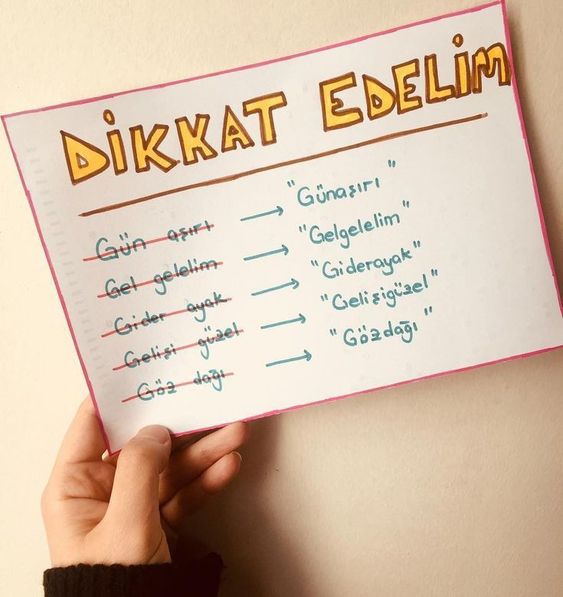 DİKKAT EDELİM
Gün aşırı → "Günaşırı"
Gel gelelim → "Gelgelelim"
Gider ayak → "Giderayak"
Gelişi güzel → "Gelişigüzel"
Göz dağı → "Gözdağı"